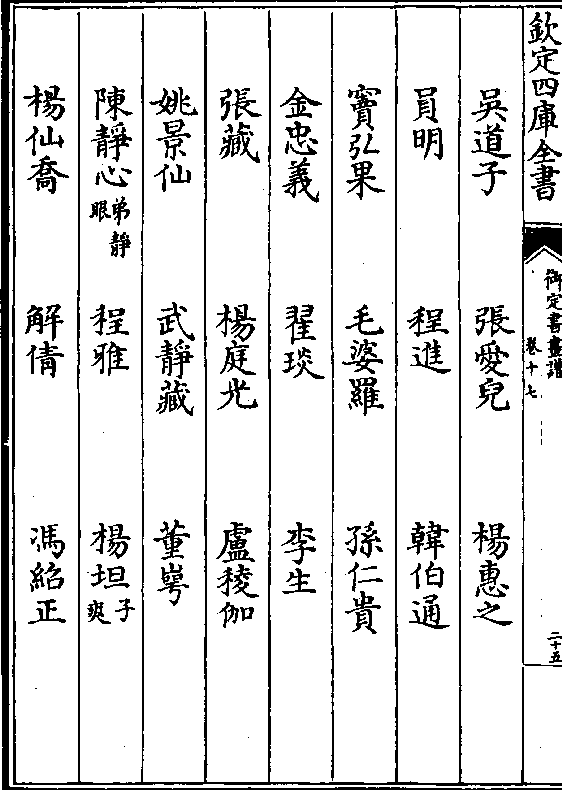 欽定四庫全書
御定書畫譜
卷十七
二十五
吳道子 張愛兒 楊惠之
員明 程進 韓伯通
竇弘果 毛婆羅 孫仁貴
金忠義 翟琰 李生
張藏 楊庭光 盧稜伽
姚景仙 武靜藏 董萼
陳靜心弟靜眼 程雅 楊坦子爽
楊仙喬 解倩 馮紹正